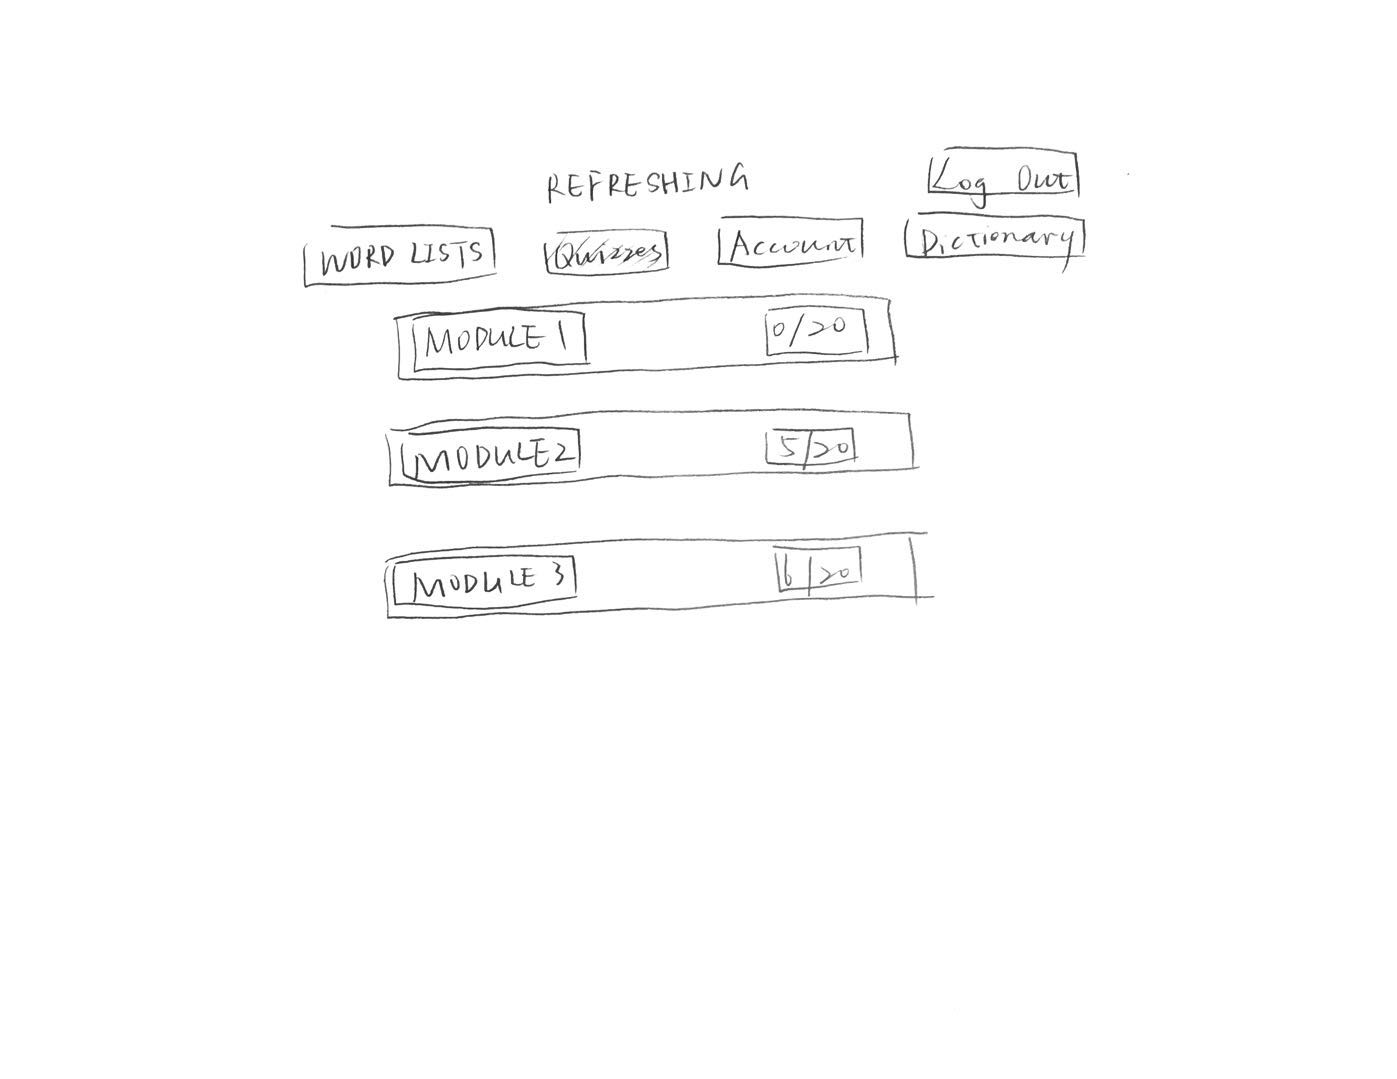 REFRESHING Log Out
WORD LISTS Quizzes Account Dictionary
MODULE 1 0/20
MODULE 2 5/20
MODULE 3 6/20